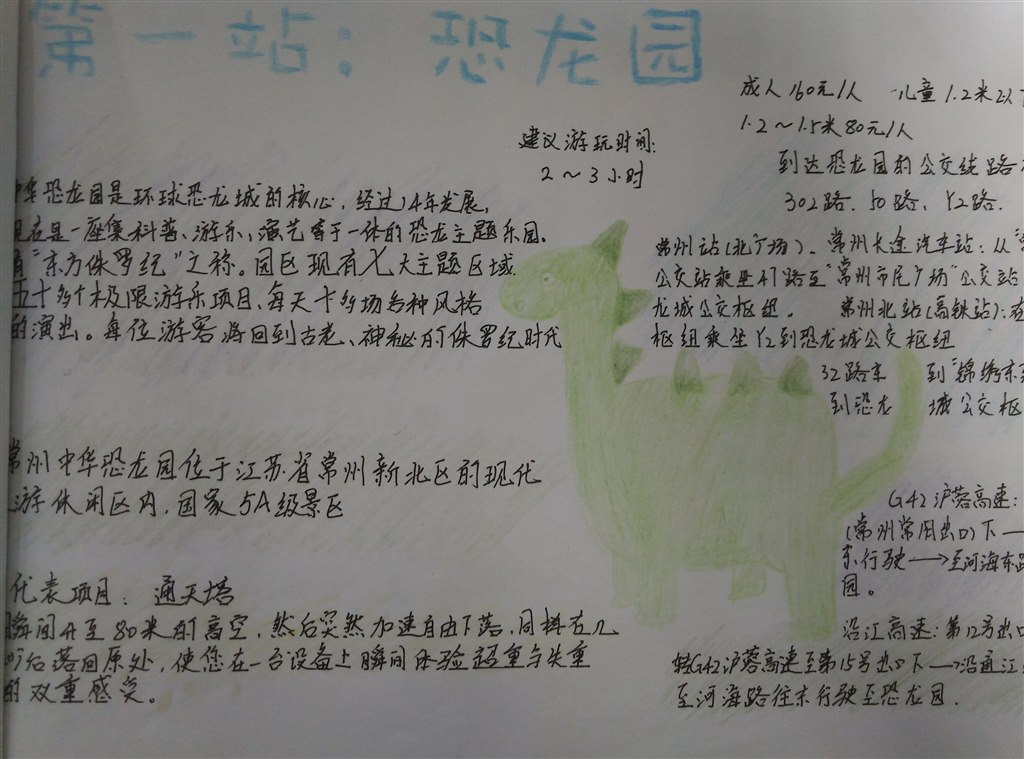 第一站：恐龙园
成人160元/人 儿童1.2米以下
1.2～1.5米80元/人
建议游玩时间：
2～3小时
到达恐龙园的公交线路
302路、50路、Y2路.
中华恐龙园是环球恐龙城的核心，经过14年发展，
现在是一座集科普、游乐、演艺等于一体的恐龙主题乐园.
有“东方侏罗纪”之称。园区现有七大主题区域
五十多个极限游乐项目、每天十多场各种风格
的演出。每位游客将回到古老、神秘的侏罗纪时代
常州站(北广场)、常州长途汽车站：从“常
公交站乘坐47路至“常州市民广场”公交站
龙城公交枢纽. 常州北站(高铁站):在
枢纽乘坐Y2到恐龙城公交枢纽
32路车 到“锦绣东
到恐龙 城公交枢
常州中华恐龙园位于江苏省常州新北区的现代
游休闲区内，国家5A级景区
G42沪蓉高速：
(常州常用出口)下—
东行驶→至河海东路
园。
代表项目：通天塔
瞬间升至80米的高空，然后突然加速自由下落，同样在几
秒后落回原处，使您在一台设备上瞬间体验超重与失重
的双重感受。
沿江高速：第12号出口
转G42沪蓉高速至第15号出口下→沿通江
至河海路往东行驶至恐龙园.